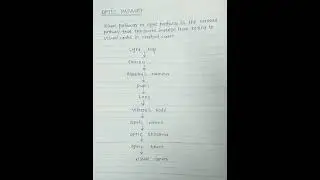 OPTIC PATHWAY
Visual pathway or optic pathway is the nervous
pathway that transmits impulses from retina to
visual center in cerebral cortex
Light rays
Cornea
Aqueous humour
Pupil
Lens
Vitreous body
Optic nerve
Optic chiasma
Optic tract
visual cortex